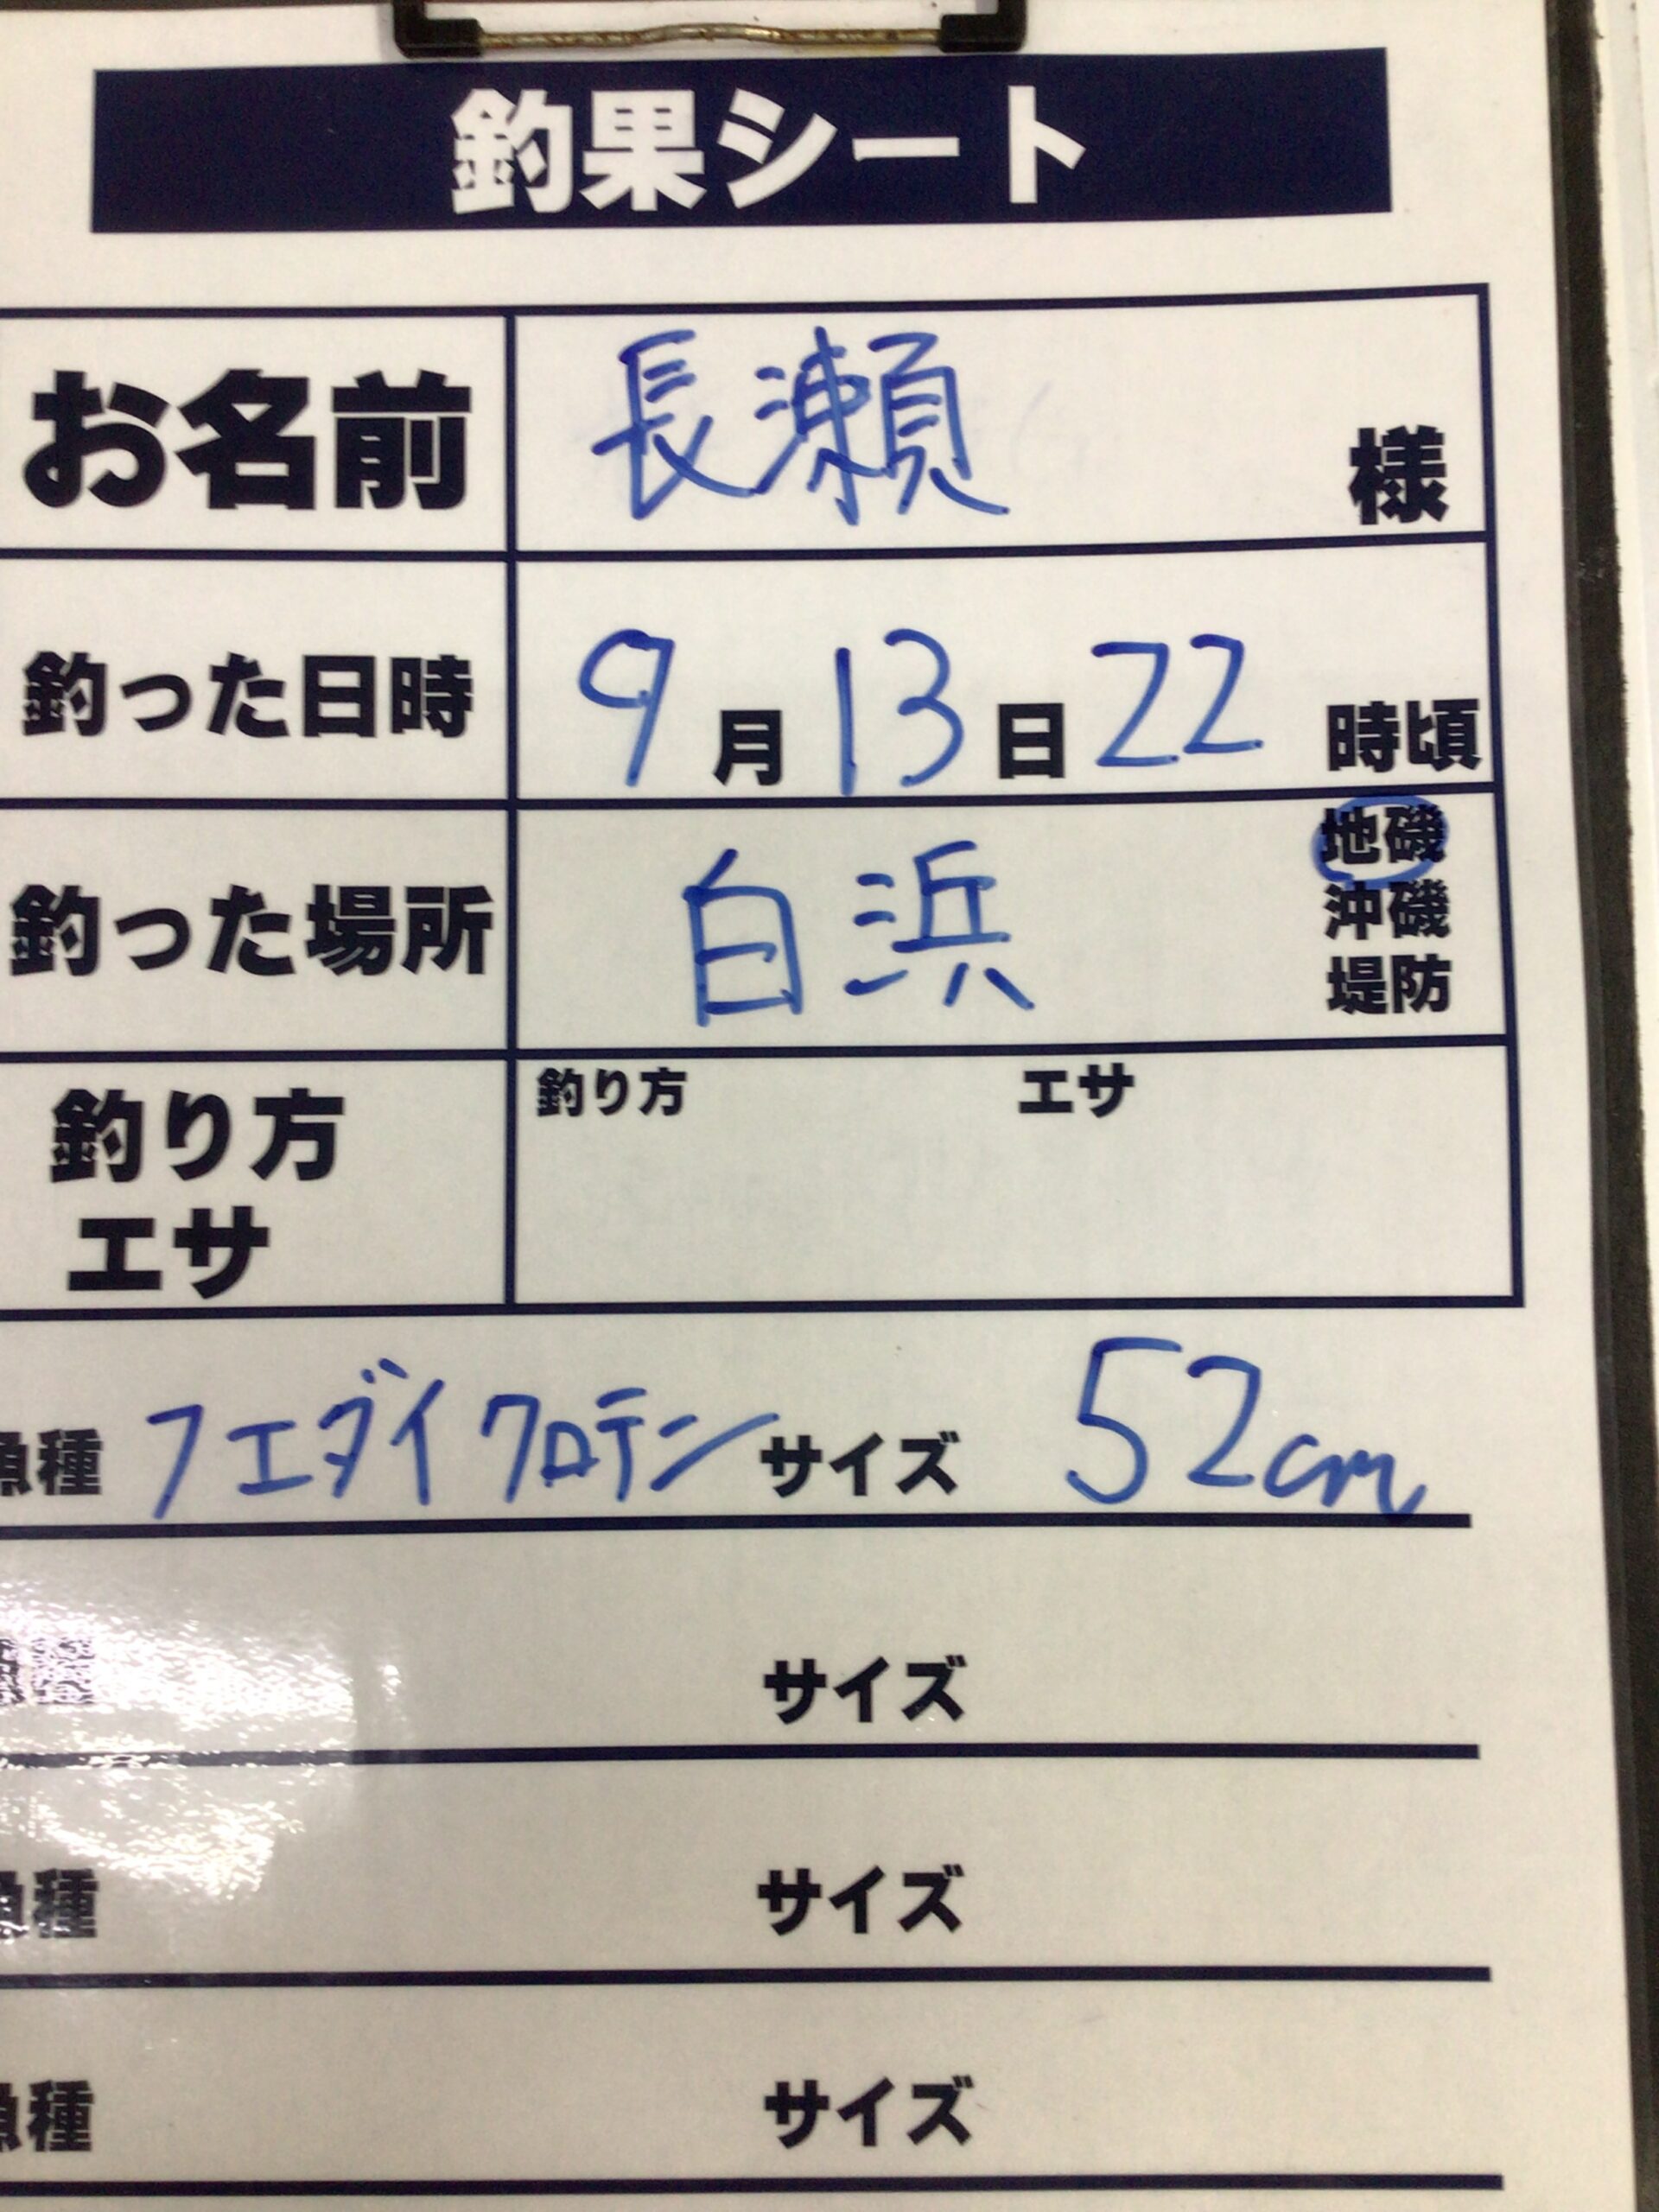 釣果シート
お名前 長瀬 様
釣った日時 9月13日22時頃
釣った場所 白浜 地磯
沖磯
堤防
釣り方 エサ
釣り方
エサ
魚種 フエダイ クロテン サイズ 52cm
サイズ
魚種 サイズ
魚種 サイズ